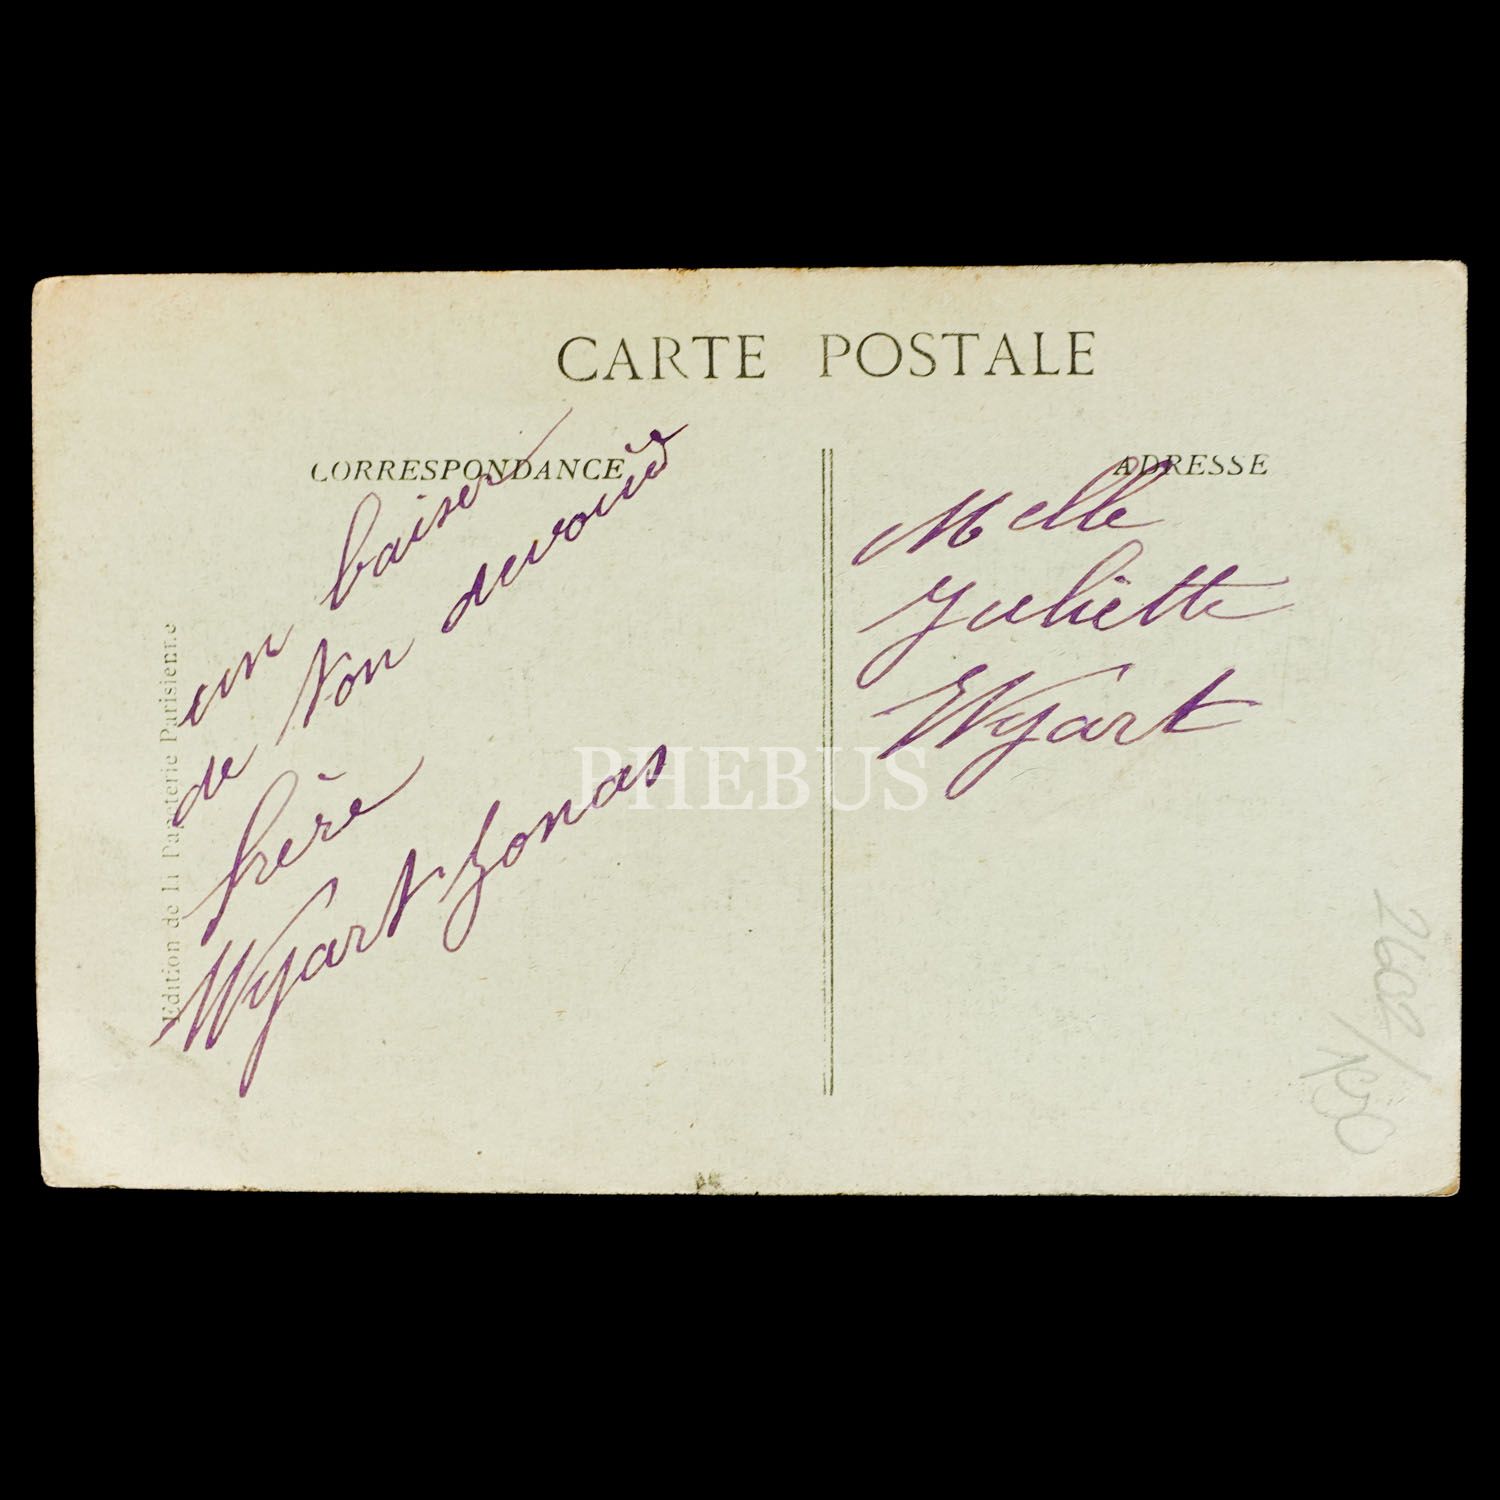 CARTE POSTALE
CORRESPONDANCE
un baiser
de ton dévoué
frère
Wyart Jonas
Edition de la Papeterie Parisienne
ADRESSE
Melle
Juliette
Wyart
PHEBUS
2602/